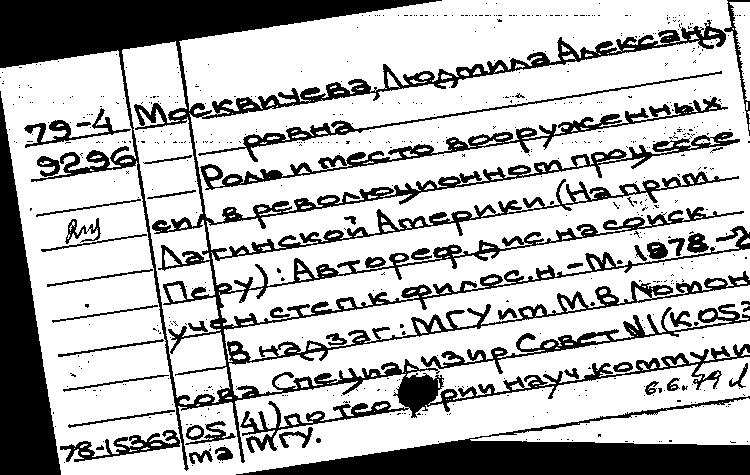 79-4 Москвичева, Людмила Александ-
9296 ровна.
Роль и место вооруженных
сил в революционном процессе
Латинской Америки. (На прим.
Перу): Автореф. дис. на соиск.
учен. степ. к. филос. н. - М., 1978. - 2
В надзаг.: МГУ им. М. В. Ломон
сова. Специализир. Совет N1 (К.053
78-15363 05. 41) по тео рии науч. коммуни
ма МГУ.
6.6.79